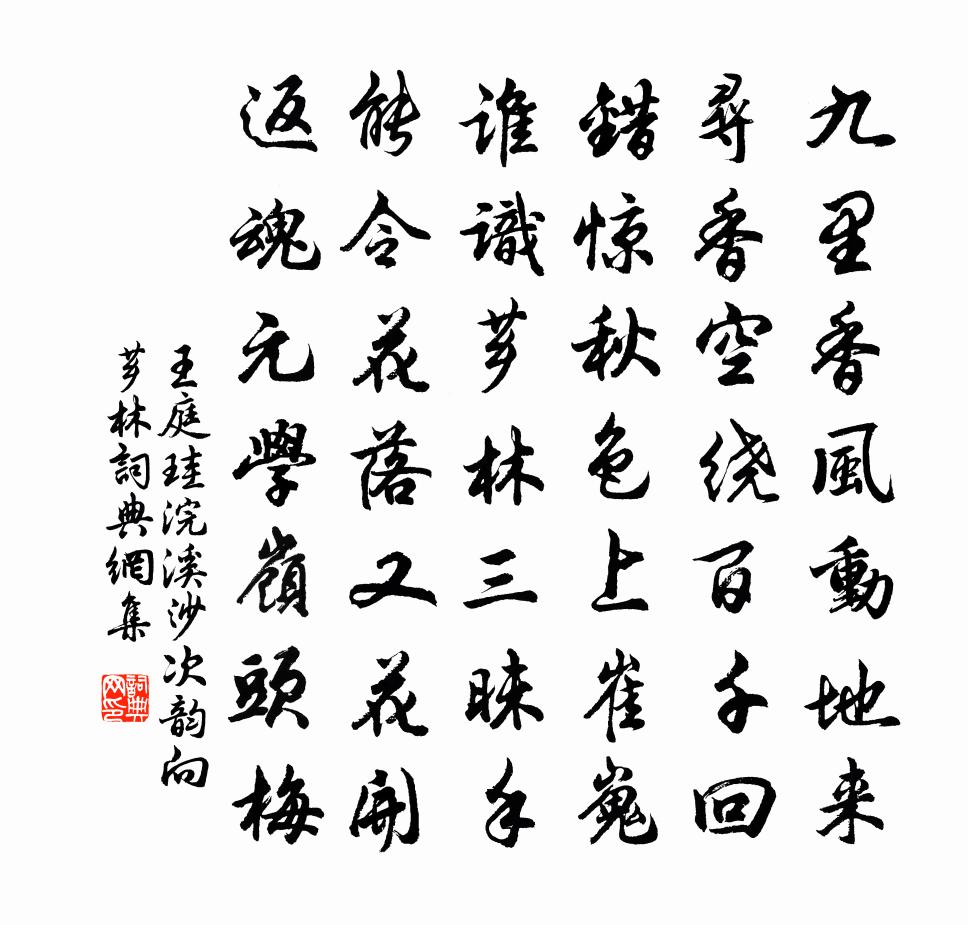 九里香風動地来
尋香空绕百千回
錯惊秋色上崔嵬
誰識芗林三昧手
能令花落又花開
返魂元學嶺頭梅
王庭珪浣溪沙次韵向
芗林詞典網集
詞典网印